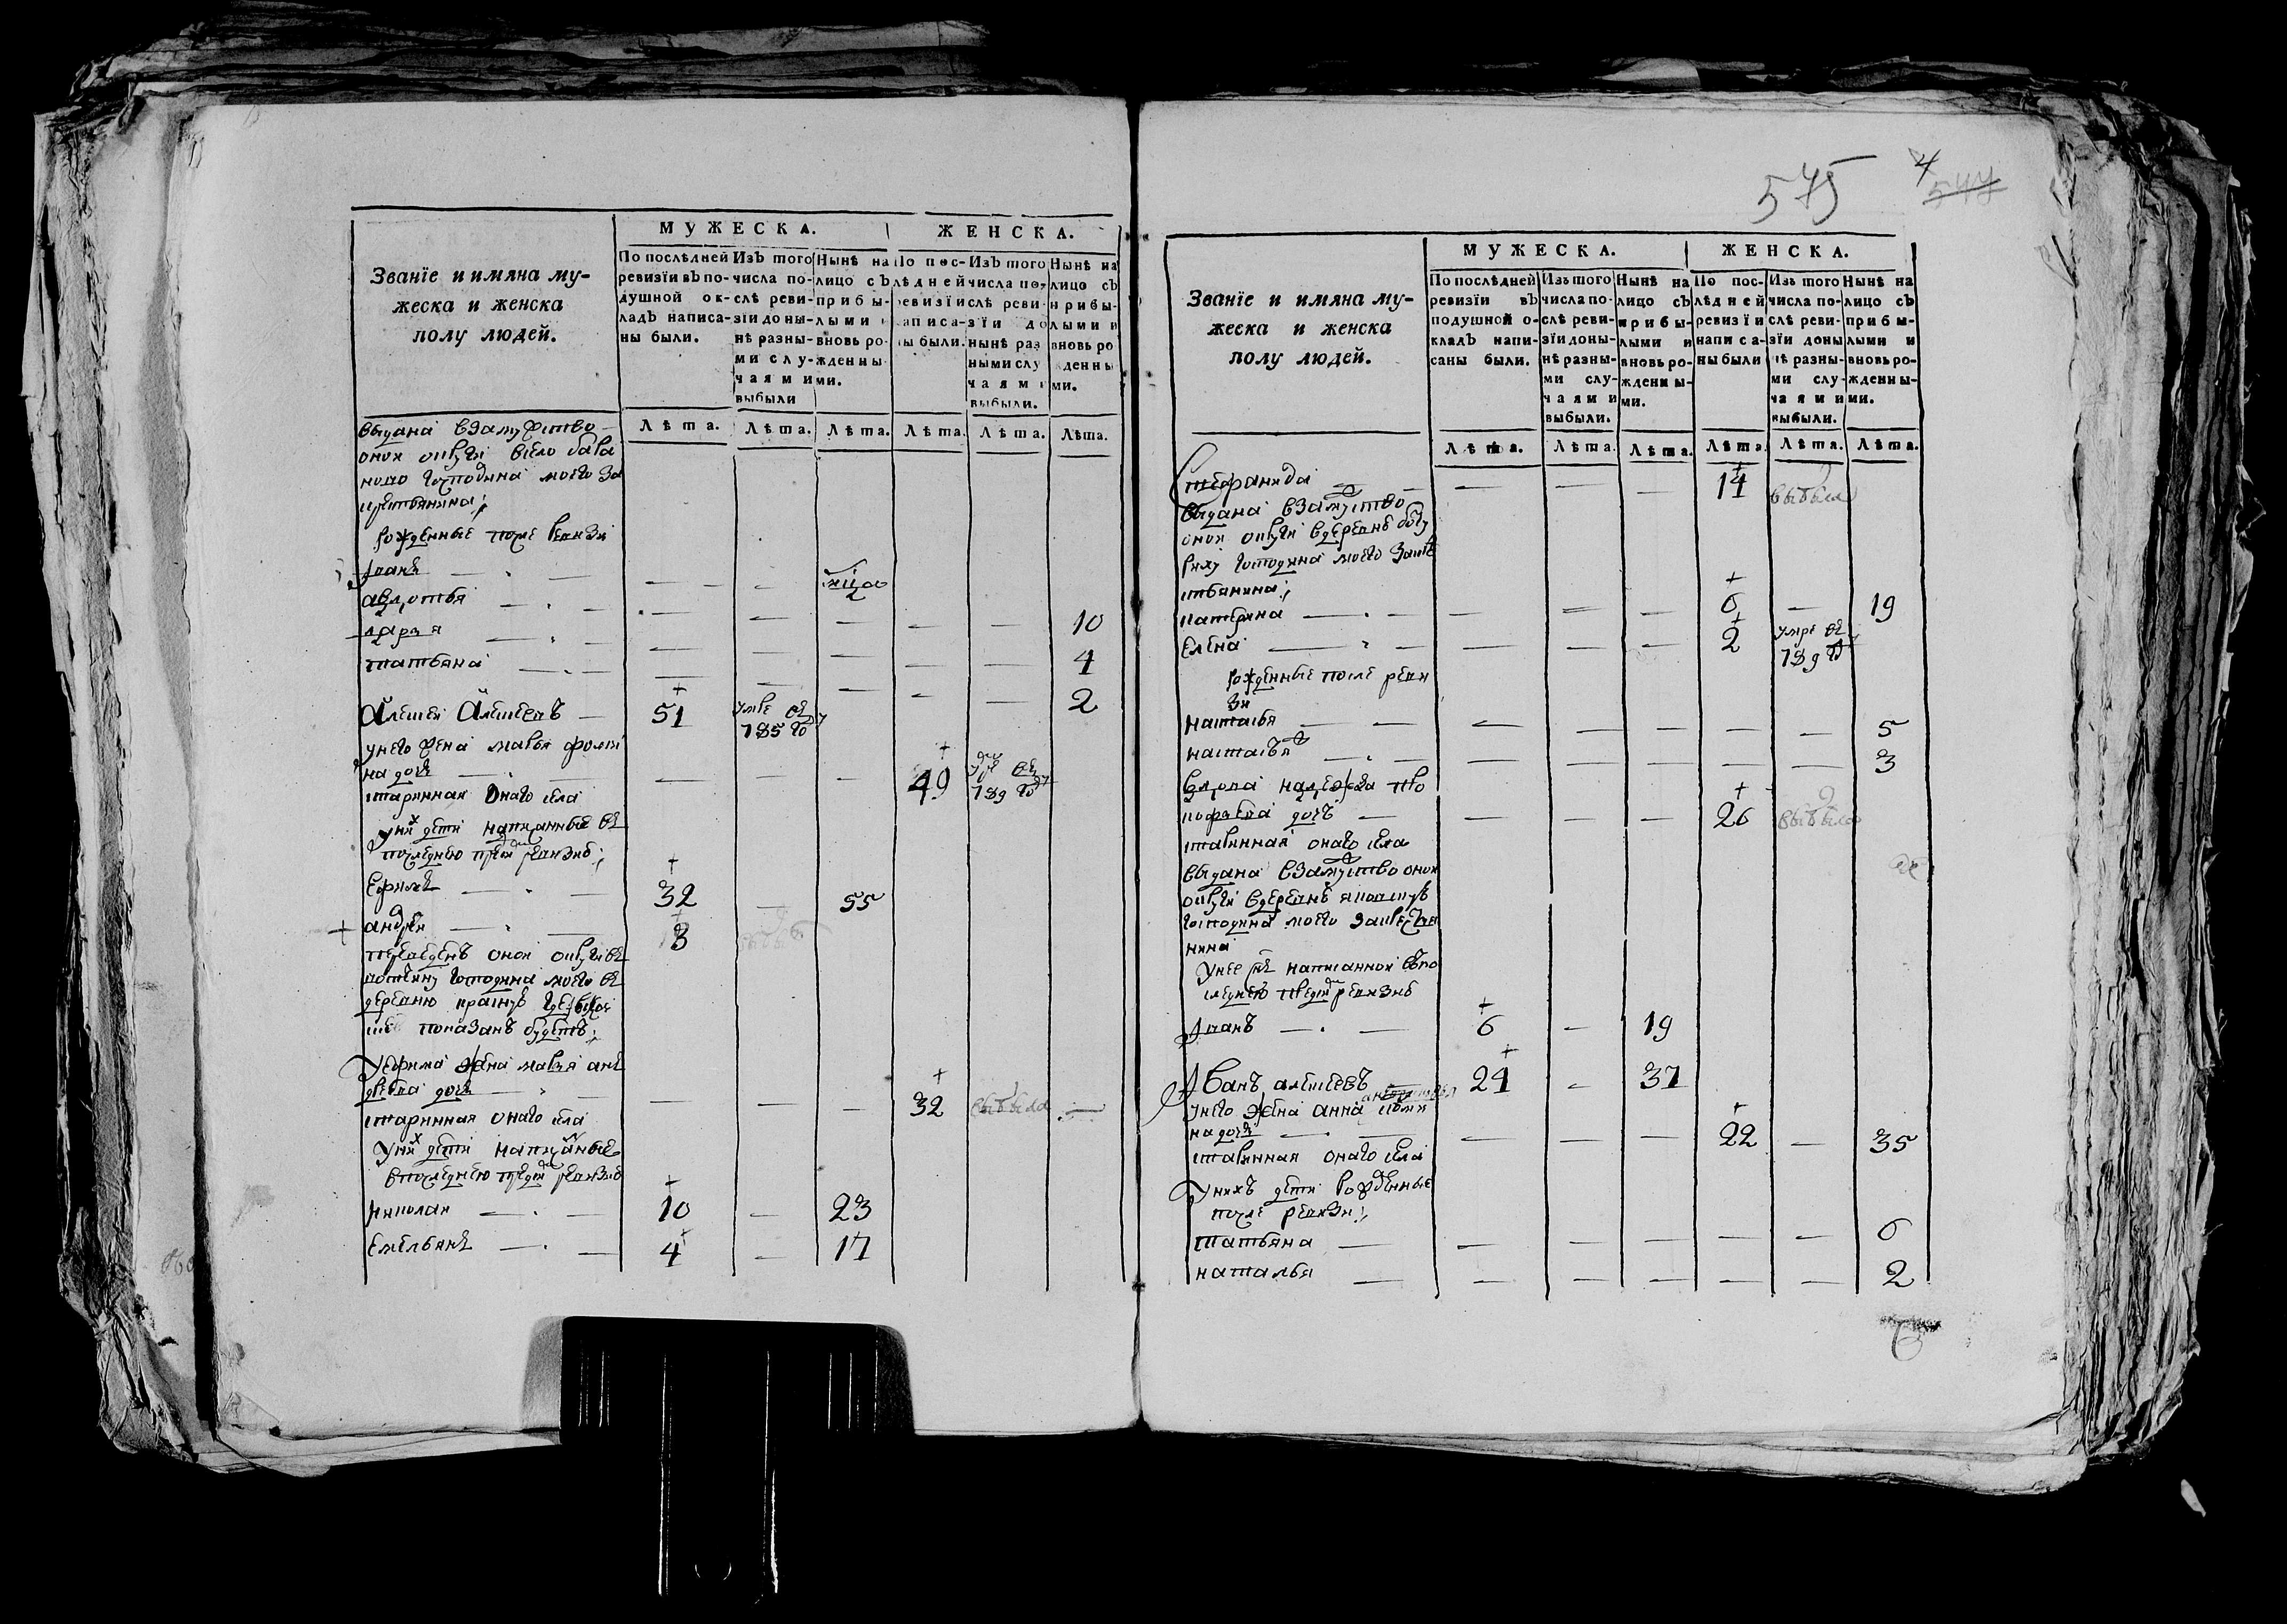 575
4
577
МУЖЕСКА.
ЖЕНСКА.
Званїе и имяна му-
жеска и женска
полу людей.
По послѣдней
ревизїи въ по-
душной ок-
ладъ написа-
ны были.
Изъ того
числа по-
слѣ реви-
зїи до ны-
нѣ разны-
ми слу-
чаями
выбыли
Нынѣ на
лицо съ
прибы-
лыми и
вновь ро-
жденны-
ми.
По пос-
лѣдней
ревизїи
написа-
ны были.
Изъ того
числа по-
слѣ реви-
зїи до
нынѣ раз
ными слу
чаями
выбыли.
Нынѣ на
лицо съ
прибы-
лыми и
вновь ро
жденны
ми.
Лѣта. Лѣта. Лѣта. Лѣта. Лѣта. Лѣта.
выдана взамужство
оной округи в село
господина моего за
крестьянина;
рожденные после ревизи
Иванъ
авдотья 10
дарья 4
татьяна 2
Алексей Алексеевъ 51 умре въ 785 году
у него жена марья фоми
на дочь 49 умре въ 789 году
старинная онаго села
у них дети написанные въ
последнею пред сим ревизию;
Ефимъ 32 55
андрей 8
переведенъ оной округи въ
вотчину господина моего въ
деревню
показанъ будетъ;
У ефима жена марья
дочь 32 выбыла
старинная онаго села
У них дети написанные
в последнею пред сим ревизию
николай 10 23
Емельянъ 4 17
МУЖЕСКА.
ЖЕНСКА.
Званїе и имяна му-
жеска и женска
полу людей.
По послѣдней
ревизїи въ
подушной о-
кладъ напи-
саны были.
Изъ того
числа по-
слѣ реви-
зїи до ны-
нѣ разны-
ми слу-
чаями
выбыли.
Нынѣ на
лицо съ
прибы-
лыми и
вновь ро-
жденны-
ми.
По пос-
лѣдней
ревизїи
написа-
ны были
Изъ того
числа по-
слѣ реви-
зїи до ны
нѣ разны-
ми слу-
чаями
выбыли.
Нынѣ на
лицо съ
прибы-
лыми и
вновь ро-
жденны-
ми.
Лѣта. Лѣта. Лѣта. Лѣта. Лѣта. Лѣта.
Стефанида 14 выбыла
выдана взамужство
оной округи в деревне
господина моего за кре
стьянина;
катерина 6 19
Елена 2 умре въ 789 го
рожденные после реви
зи
наталья 5
настасья 3
вдова надежда про
кофьева дочь 26 выбыла
старинная онаго села
выдана взамужство оной
округи в деревню
господина моего за крестья
нина
У нее сынъ написанной въ по
следнею пред сим ревизию
Иванъ 6 19
Иванъ алексеевъ 24 37
У него жена анна
на дочь 22 35
старинная онаго села
У нихъ дети рожденные
после ревизи;
татьяна 6
наталья 2